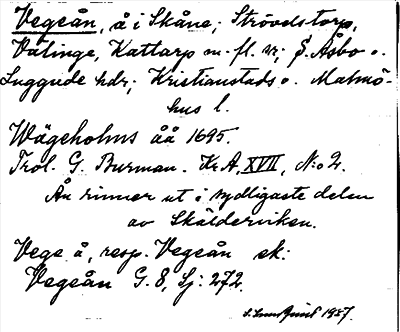 Vegeån, å i Skåne; Strövelstorp,
Välinge, Kattarp m. fl. sr; S. Åsbo o.
Luggude hdr; Kristianstads o. Malmö-
hus l.
Wägeholms åå 1695.
Trol. G. Burman. Kr A, XVII, N:o 2.
Ån rinner ut i sydligaste delen
av Skälderviken.
Vege å, resp. Vegeån ek.
Vegeån G. 8, Sj: 272.
1987.